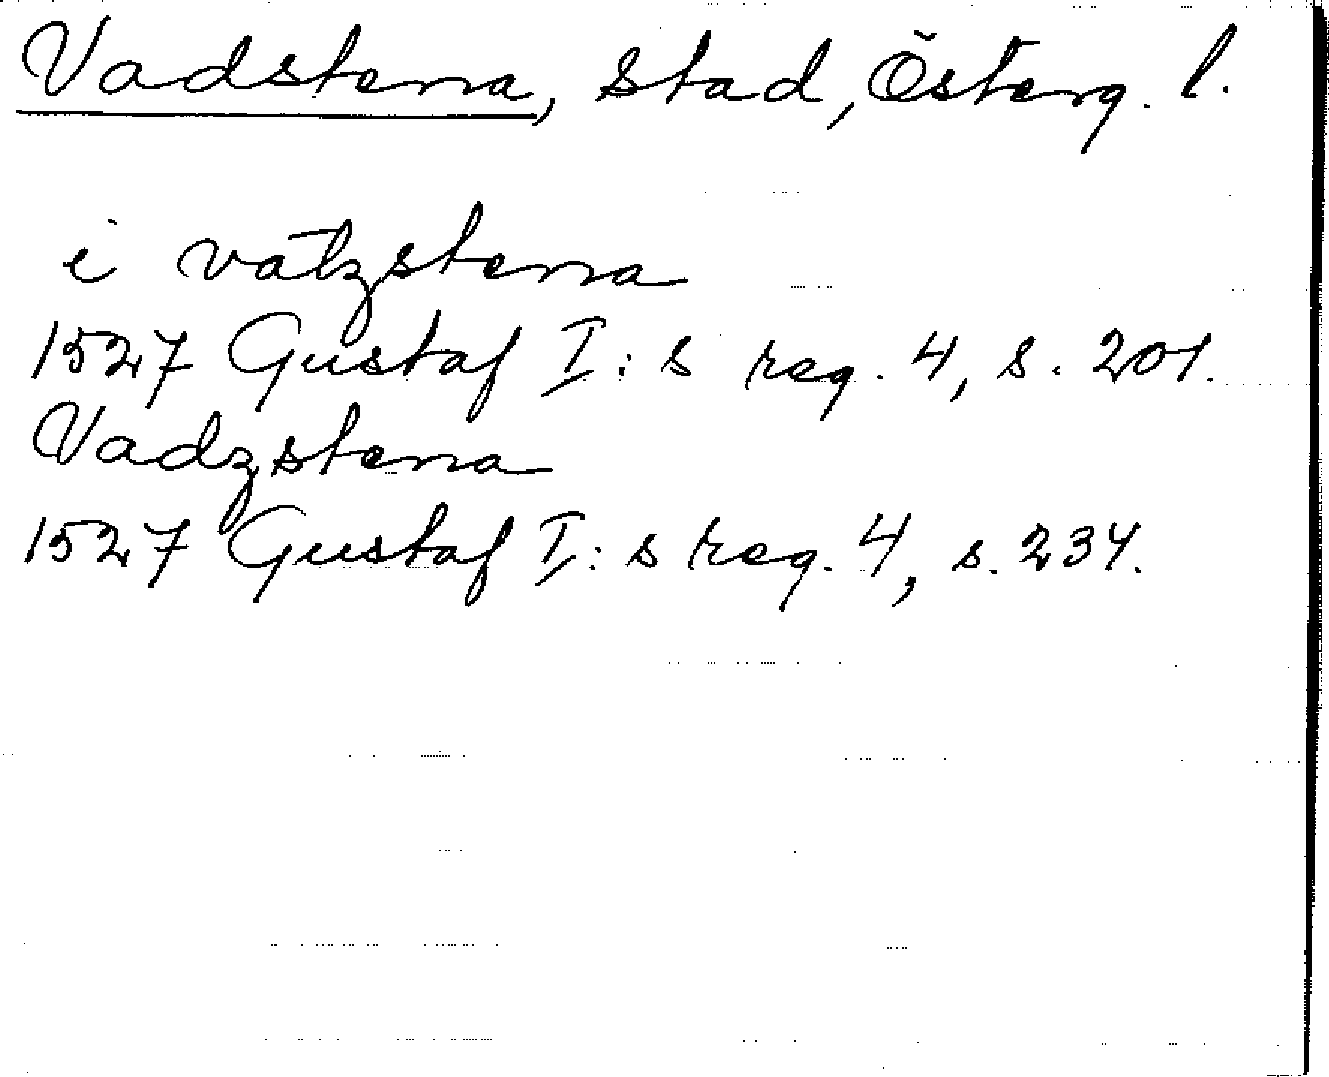 Vadstena, stad, Österg. l.
i vatzstena
1527 Gustaf I:s reg. 4, s. 201.
Vadzstena
1527 Gustaf I:s reg. 4, s. 234.